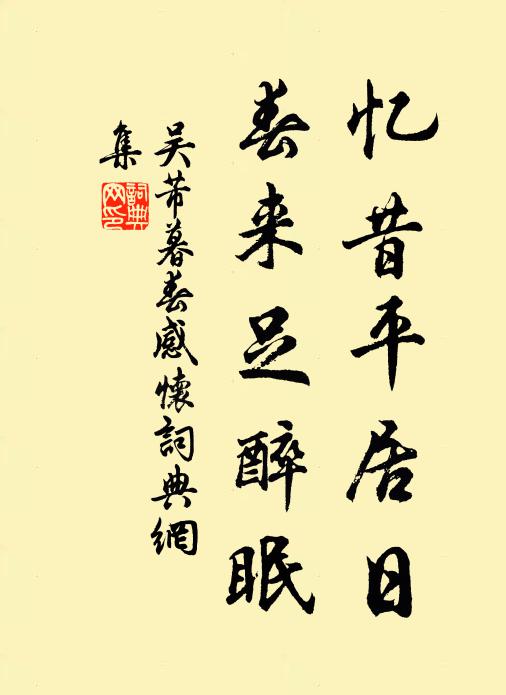 忆昔平居日
春来足醉眠
吴芾暮春感怀詞典網
集
詞典
网印